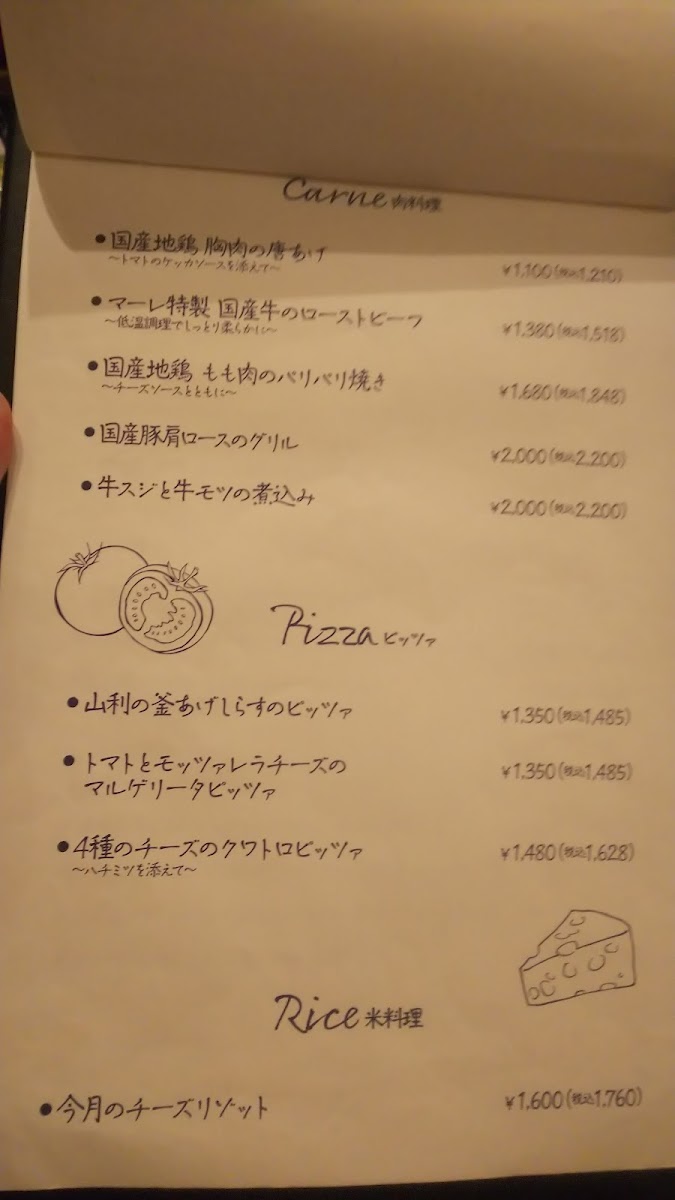 Carne 肉料理
●国産地鶏 胸肉の唐あげ
～トマトのケッカソースを添えて～
¥1,100(税込1,210)
●マーレ特製 国産牛のローストビーフ
～低温調理でしっとり柔らかに～
¥1,380(税込1,518)
●国産地鶏 もも肉のパリパリ焼き
～チーズソースとともに～
¥1,680(税込1,848)
●国産豚肩ロースのグリル
¥2,000(税込2,200)
●牛スジと牛モツの煮込み
¥2,000(税込2,200)
Pizza ピッツァ
●山利の釜あげしらすのピッツァ
¥1,350(税込1,485)
●トマトとモッツァレラチーズの
マルゲリータピッツァ
¥1,350(税込1,485)
●4種のチーズのクワトロピッツァ
～ハチミツを添えて～
¥1,480(税込1,628)
Rice 米料理
●今月のチーズリゾット
¥1,600(税込1,760)